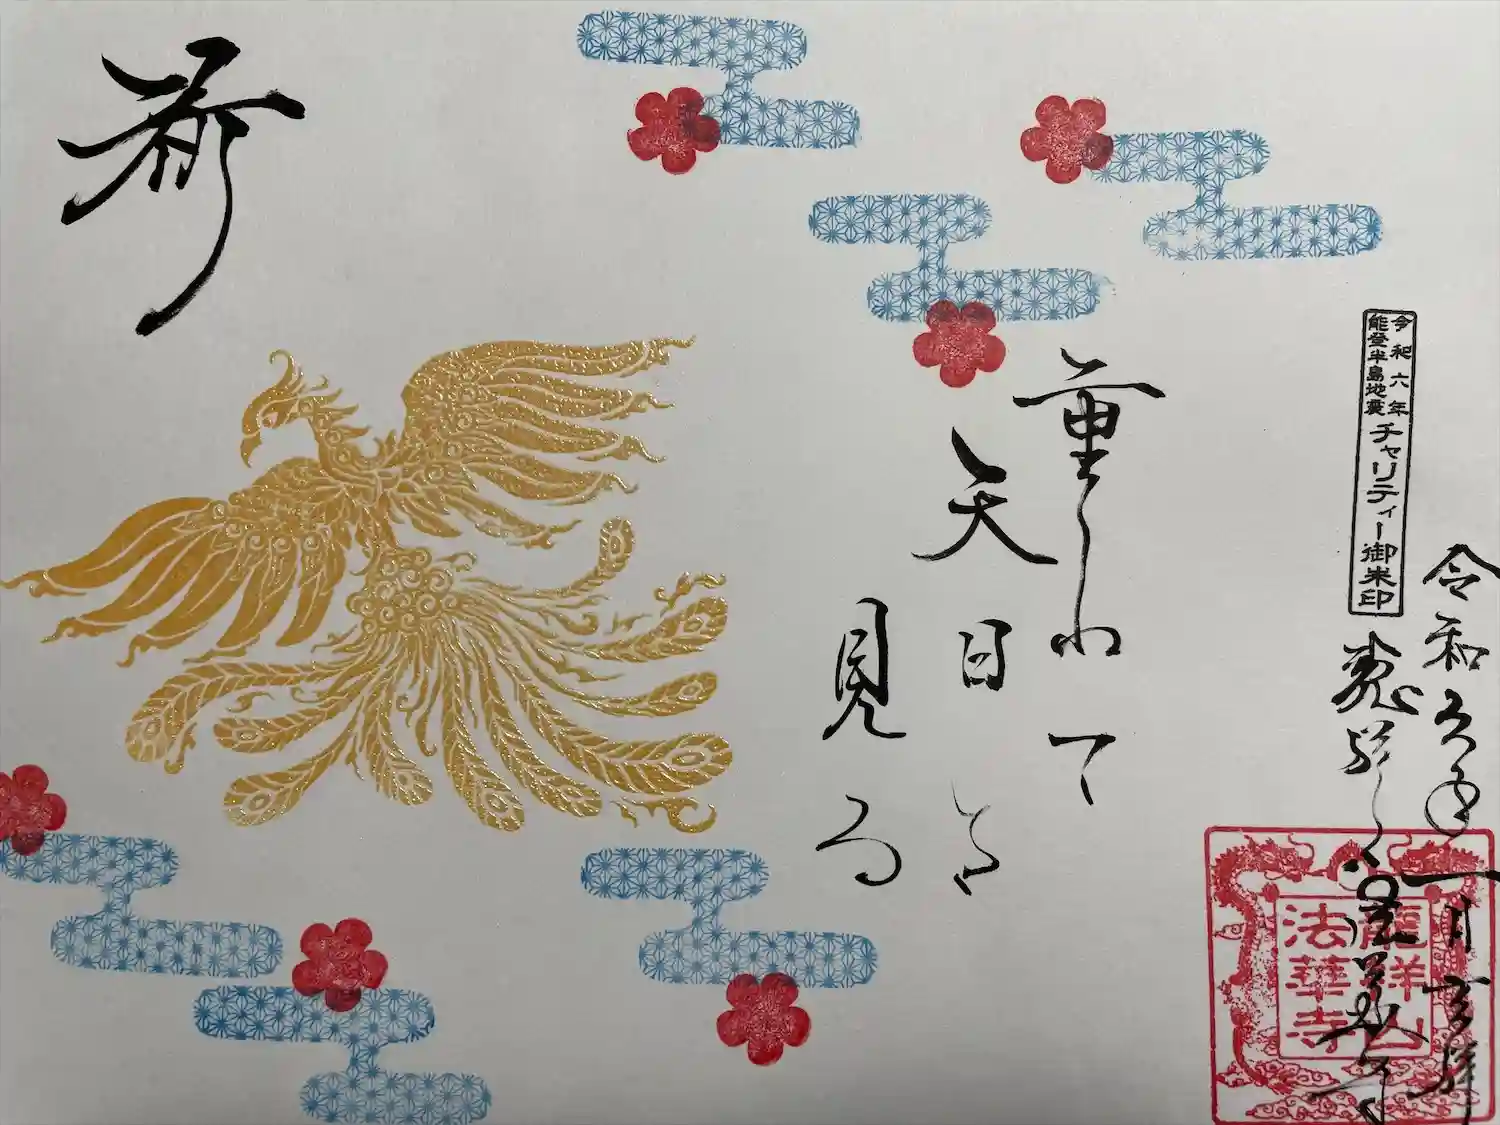 令和六年一月吉祥
令和六年
能登半島地震
チャリティー御朱印
龍祥山
法華寺
重ねて
天日を
見る